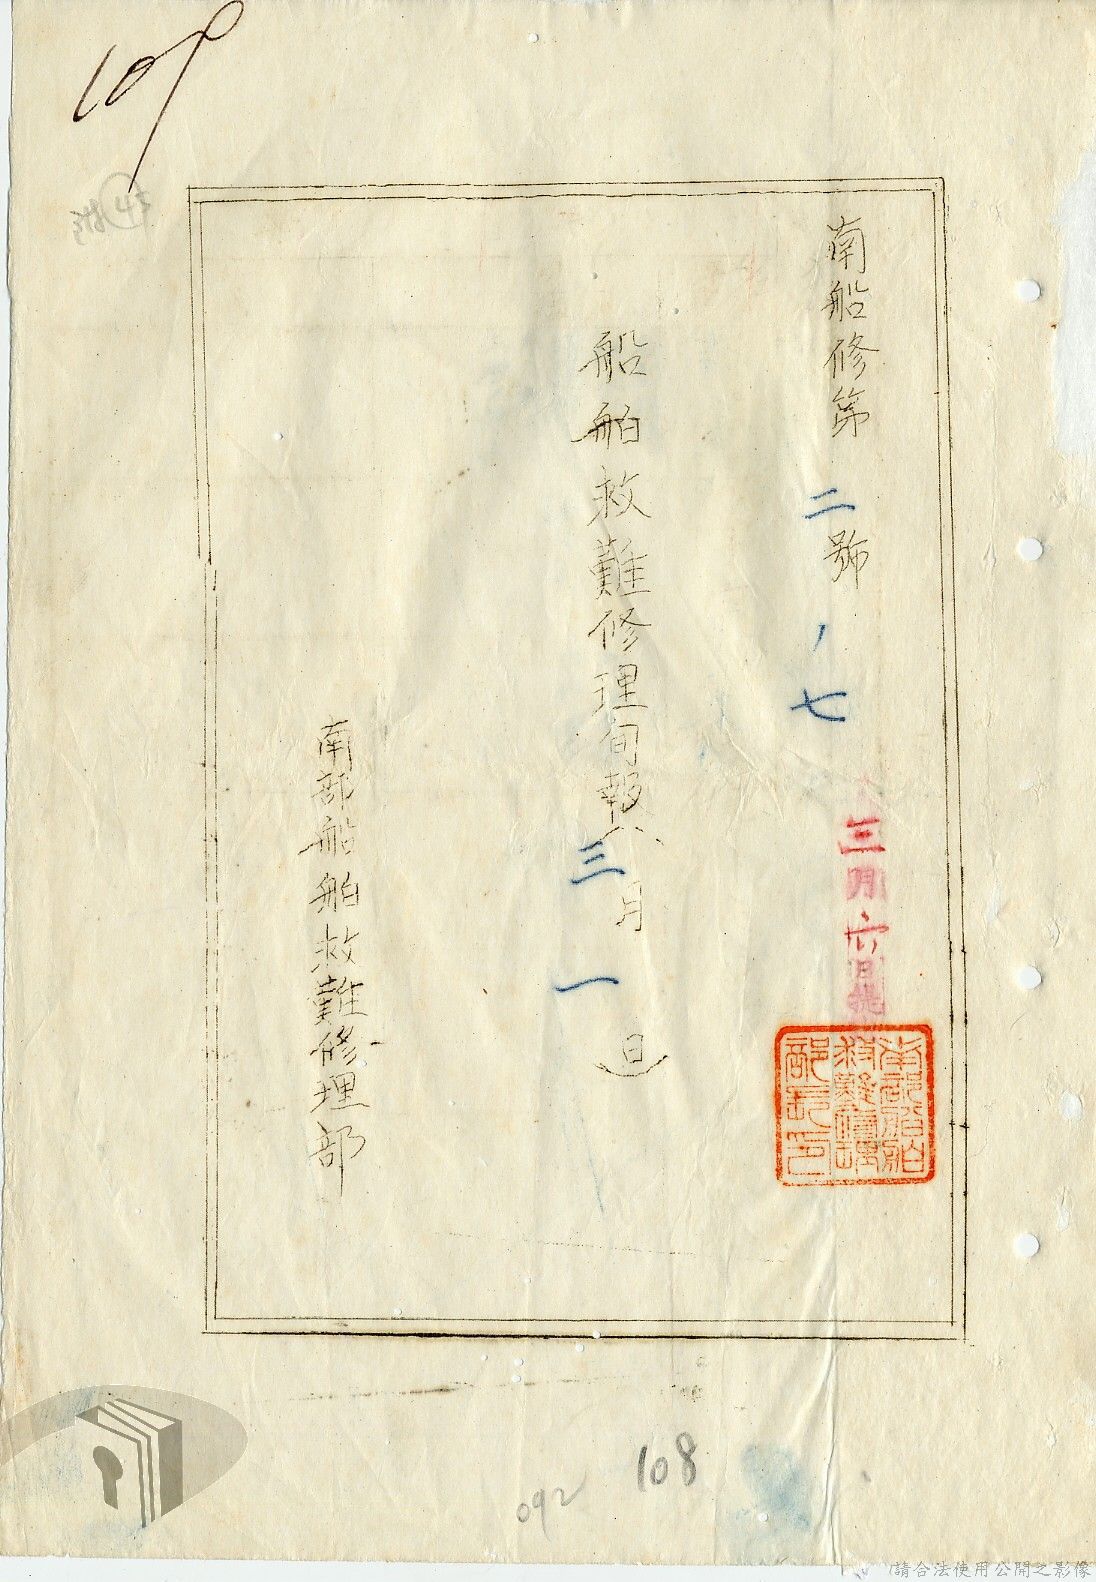 109
南船修第二號ノ七
三月六日提
南部船舶救難修理部長印
船舶救難修理旬報（三月一日）
南部船舶救難修理部
108
092
請合法使用公開之影像